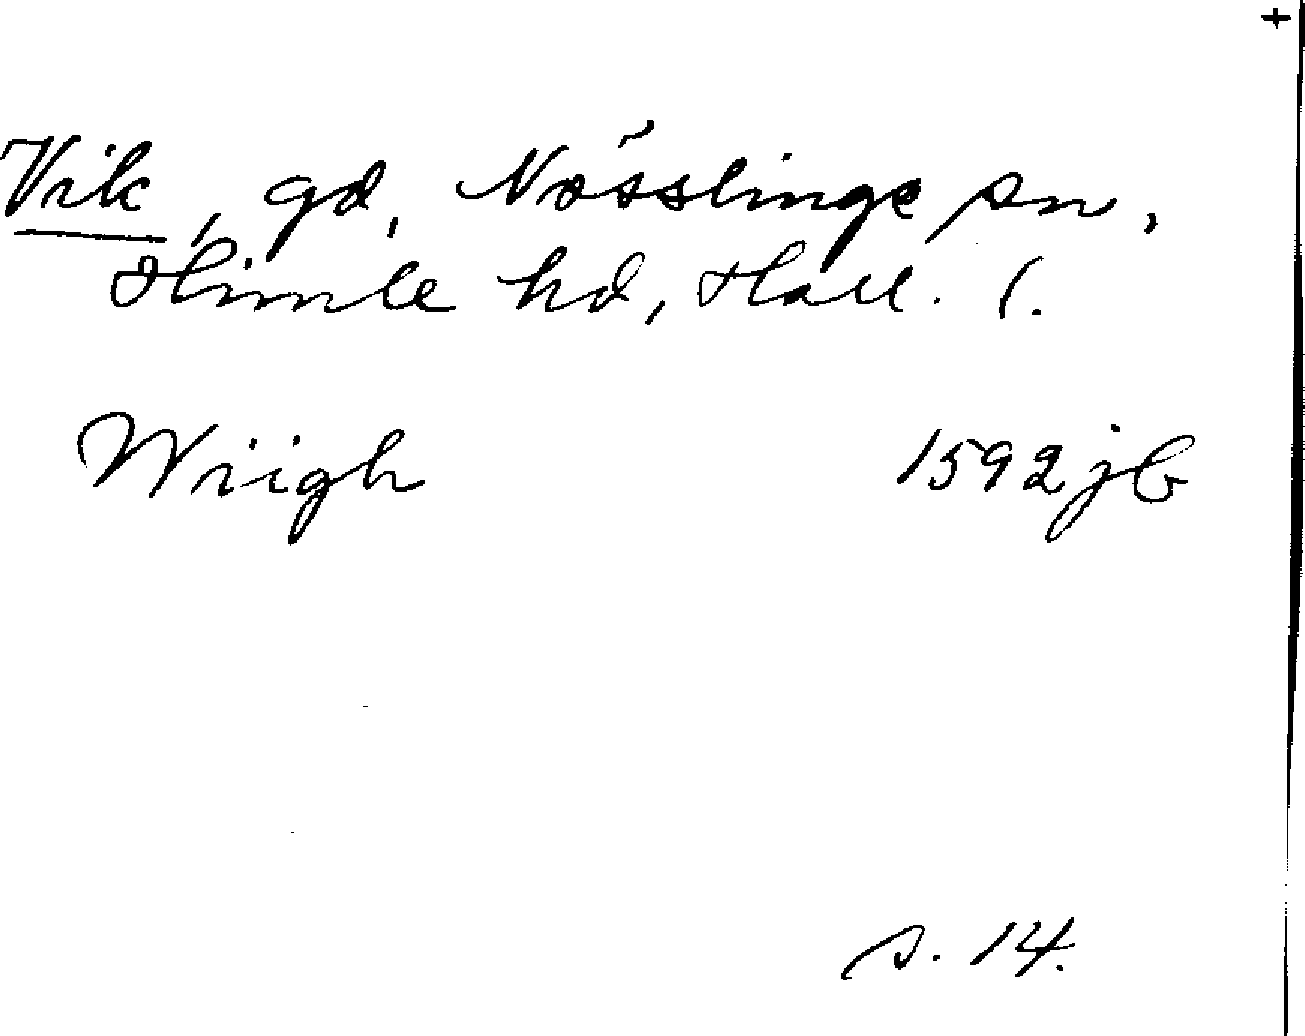 +
Vik, gd, Nösslinge sn,
Himle hd, Hall. l.
Wiigh 1592 jb
s. 14.